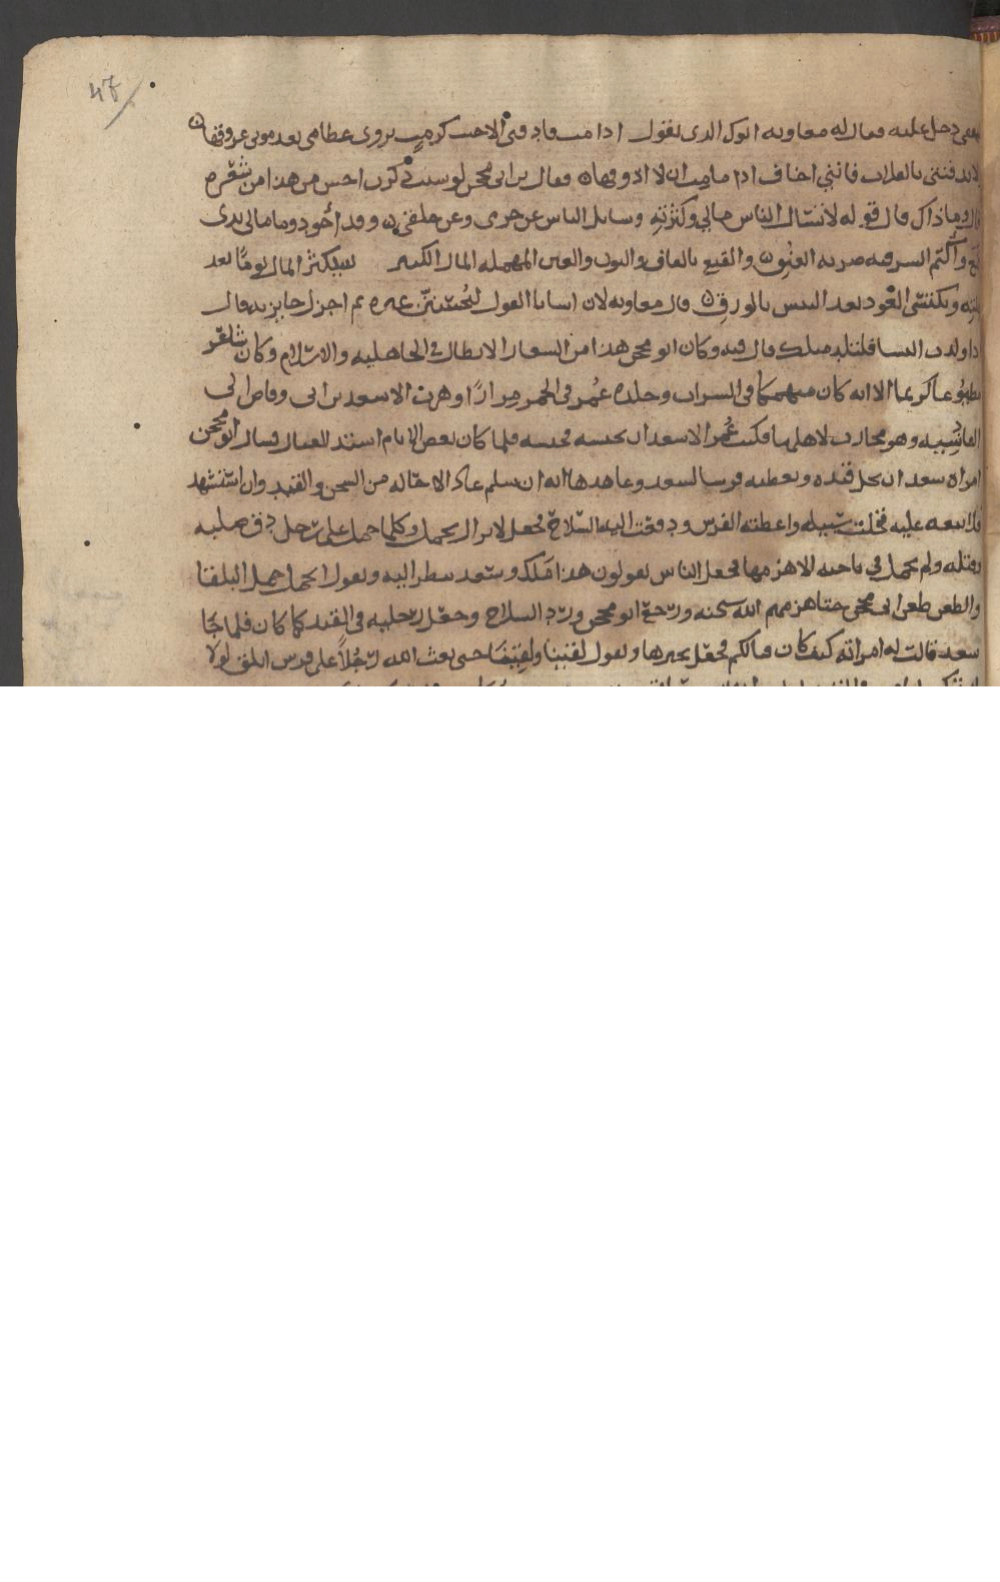 47
دخل عليه فقال له معاويه ابوك الذى يقول اذا مت فادفنى الى جنب كرمه تروى عظامى بعد موتى عروقها
ولا تدفننى بالفلاه فاننى اخاف اذا ما مت ان لا اذوقها فقال بن ابى محجن لو شيت ذكرت احسن من هذا من شعره
قال وما ذاك قال قوله لا تسال الناس مالي وكثرته وسايل الناس عن حزمى وعن خلقى وقد اجود وما مالى بذى
فنع واكتم السر فيه ضربه العنق والفنع بالفاف والنون والعين المهمله المال الكثير سيكثر المال يوما بعد
قلته ويكتسى العود بعد اليبس بالورق قال معاويه لان اسانا القول لنحسنن غيره ثم اجزل جايزته وقال
اذا ولدت النسا فلتلد مثلك قال فيه وكان ابو محجن هذا من الشعار الابطال في الجاهليه والاسلام وكان شاعر
مطبوعا كريما الا انه كان منهمكا فى الشراب وجلده عمر فى الخمر مرارا وهرب الا سعد بن ابى وقاص الى
القادسيه وهو محارب لاهلها فكتب عمر الا سعد ان يحبسه فحبسه فلما كان بعض الايام اشتد القتال فسال ابو محجن
امراه سعد ان تحل قيده وتعطيه فرسا لسعد وعاهدها انه ان سلم عاد الا حاله من السجن والقيد وان استشهد
فلا تبعه عليه فخلت سبيله واعطته الفرس ودفعت اليه السلاح فجعل لا يزال يحمل وكلما حمل على رجل دق صلبه
وقتله ولم يحمل في ناحيه الا هزمها فجعل الناس يقولون هذا ملك وسعد ينظر اليه ويقول الحمل حمل البلقا
والطعن طعن ابى محجن حتا هزمهم الله سبحنه ورجع ابو محجن ورد السلاح وجعل رجليه فى القيد كما كان فلما جا
سعد قالت له امراته كيف كان قتالكم فجعل يخبرها ويقول لقينا ولقينا حتى بعث الله رجلا على فرس ابلق لولا